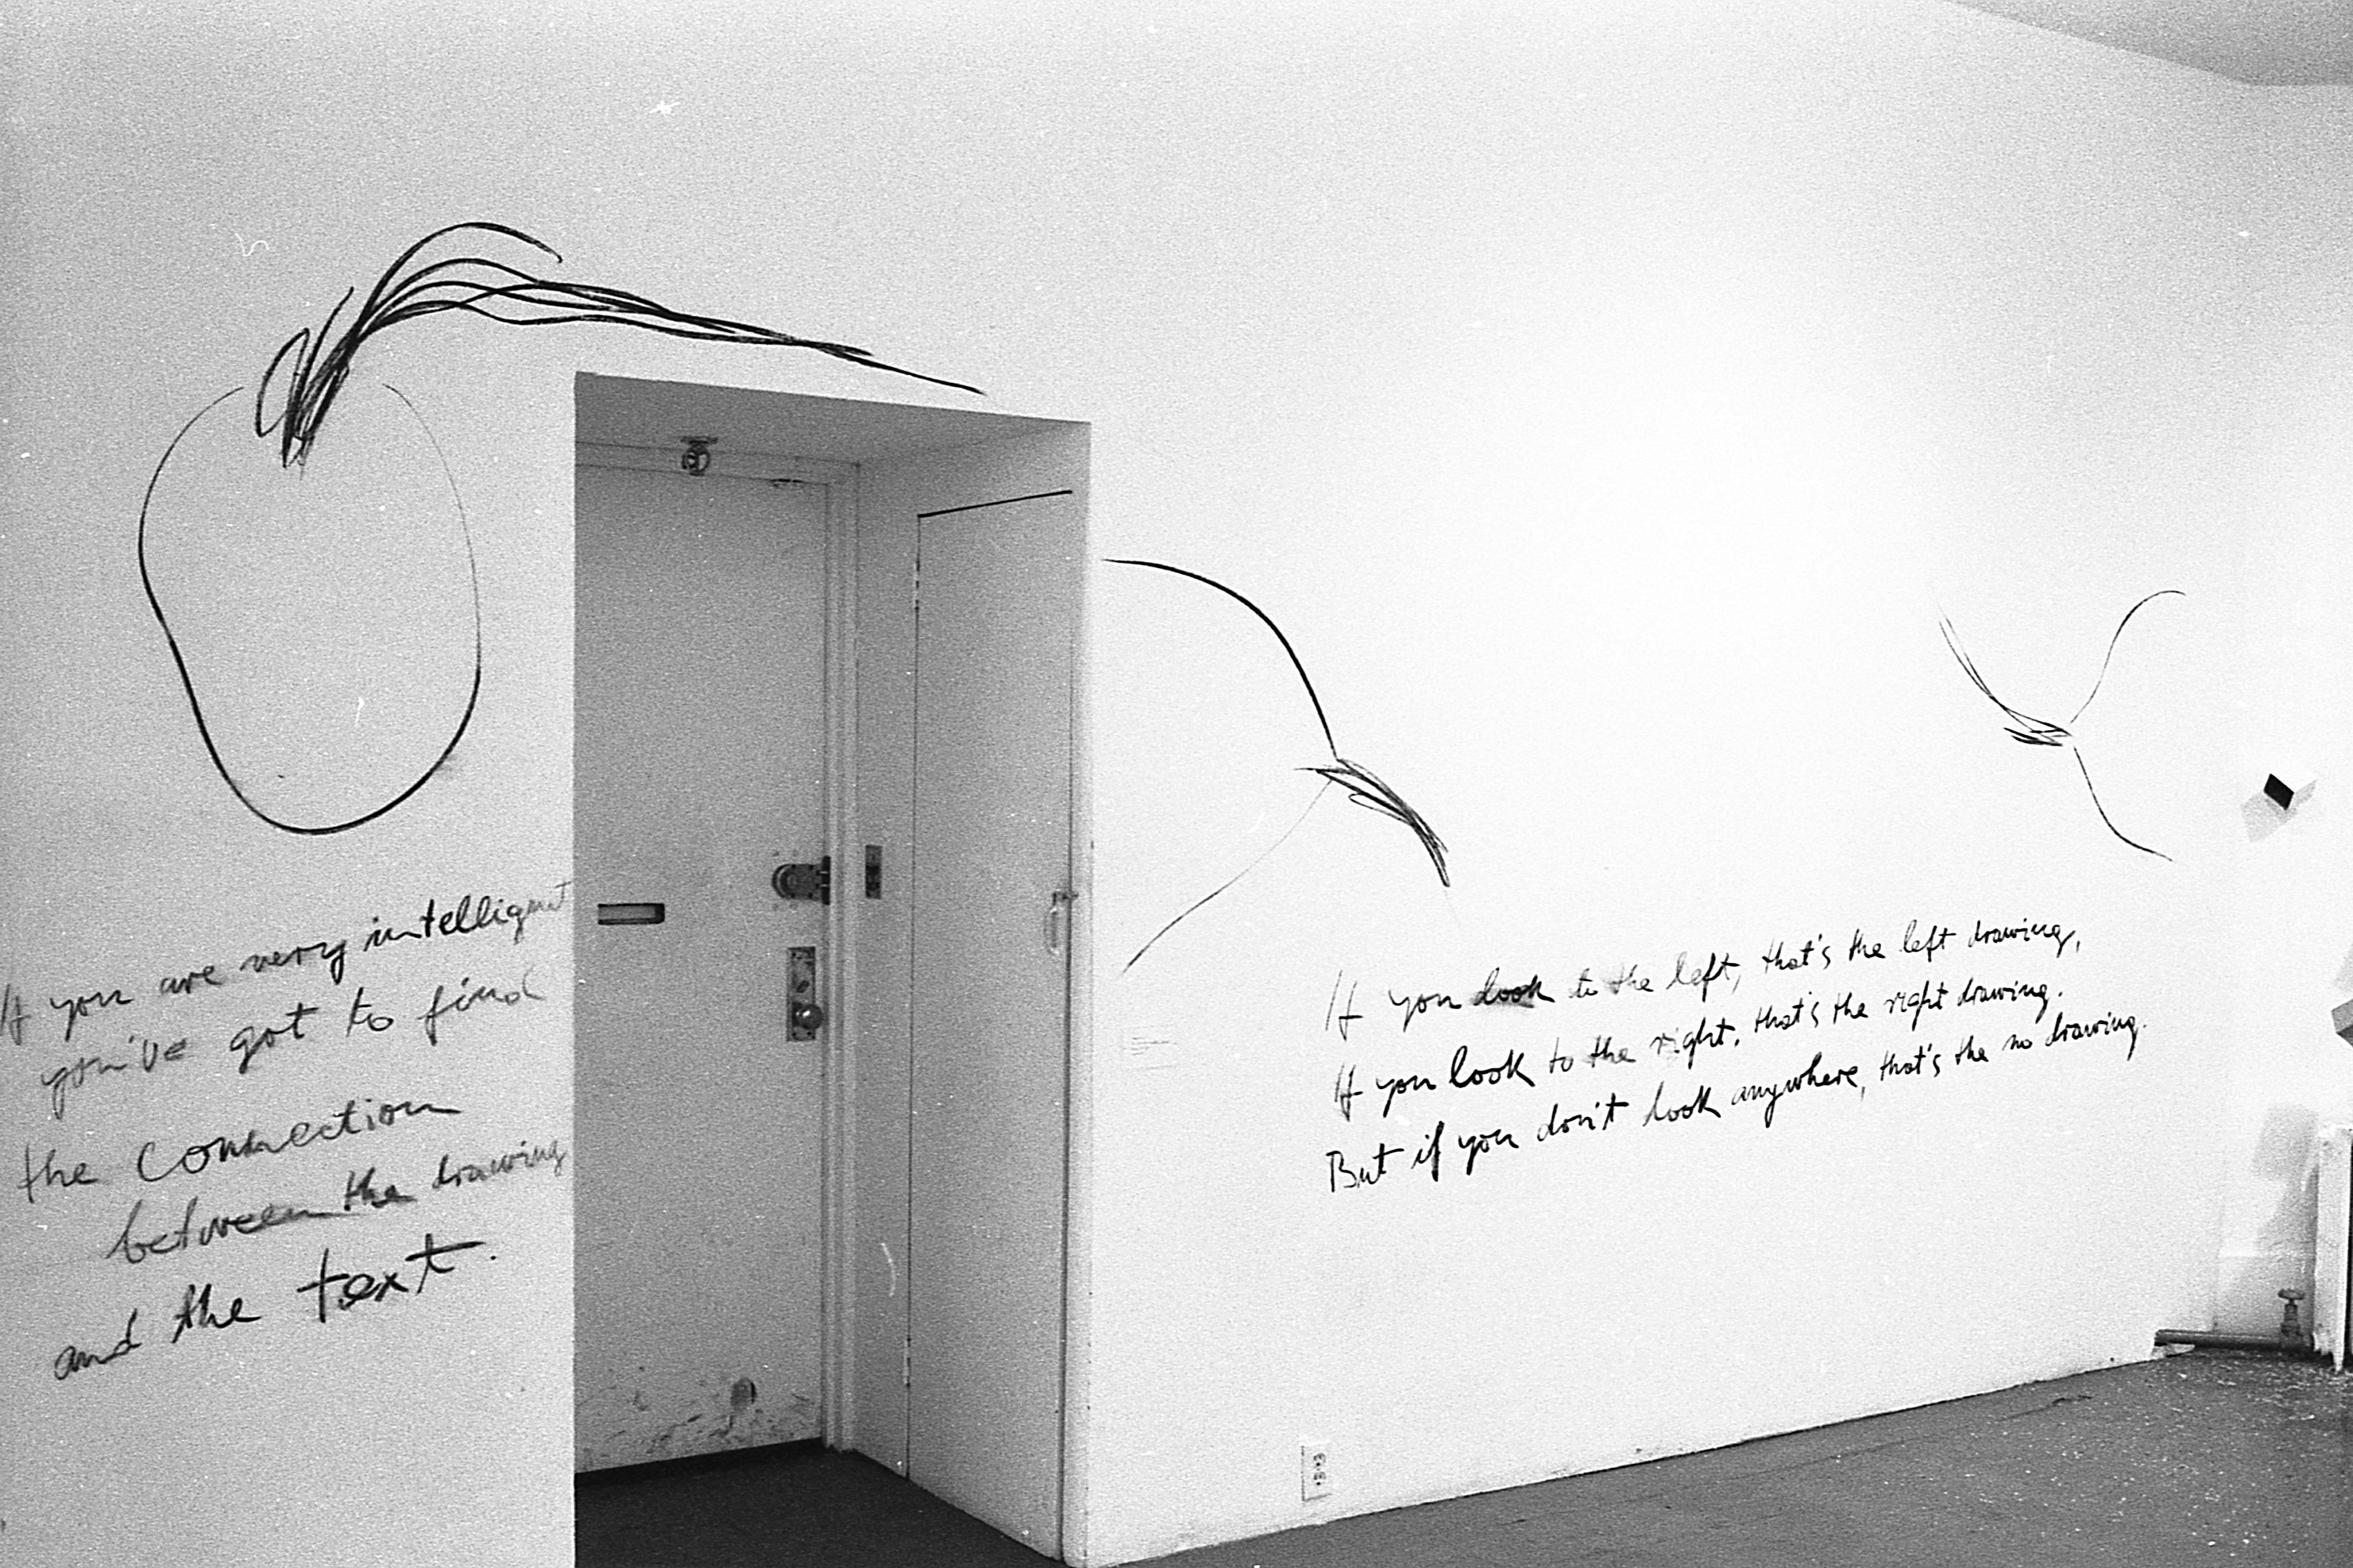 If you are very intelligent
you've got to find
the connection
between the drawing
and the text.
If you look to the left, that's the left drawing,
If you look to the right, that's the right drawing.
But if you don't look anywhere, that's the no drawing.